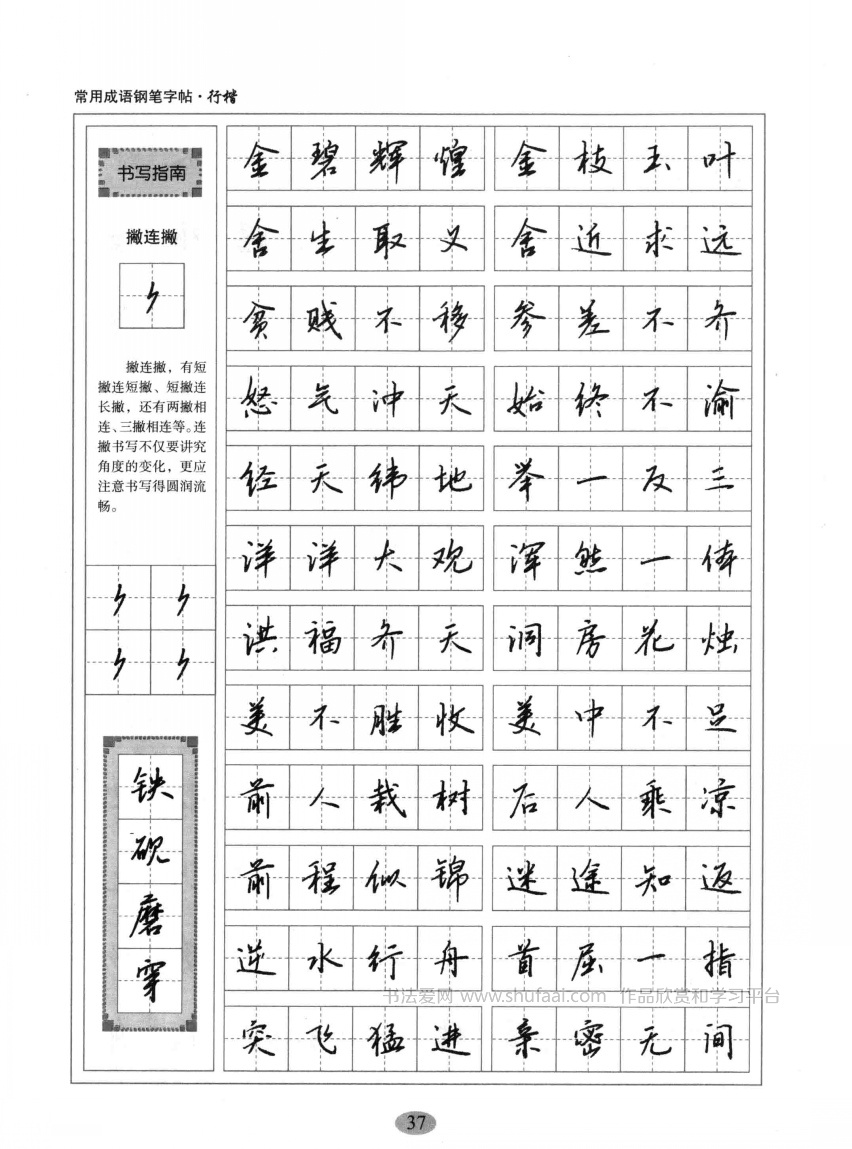 常用成语钢笔字帖·行楷
书写指南
撇连撇
撇连撇，有短
撇连短撇、短撇连
长撇，还有两撇相
连、三撇相连等。连
撇书写不仅要讲究
角度的变化，更应
注意书写得圆润流
畅。
铁砚磨穿
金碧辉煌 金枝玉叶
舍生取义 舍近求远
贫贱不移 参差不齐
怒气冲天 始终不渝
经天纬地 举一反三
洋洋大观 浑然一体
洪福齐天 洞房花烛
美不胜收 美中不足
前人栽树 后人乘凉
前程似锦 迷途知返
逆水行舟 首屈一指
书法爱网 www.shufaai.com 作品欣赏和学习平台
突飞猛进 亲密无间
37